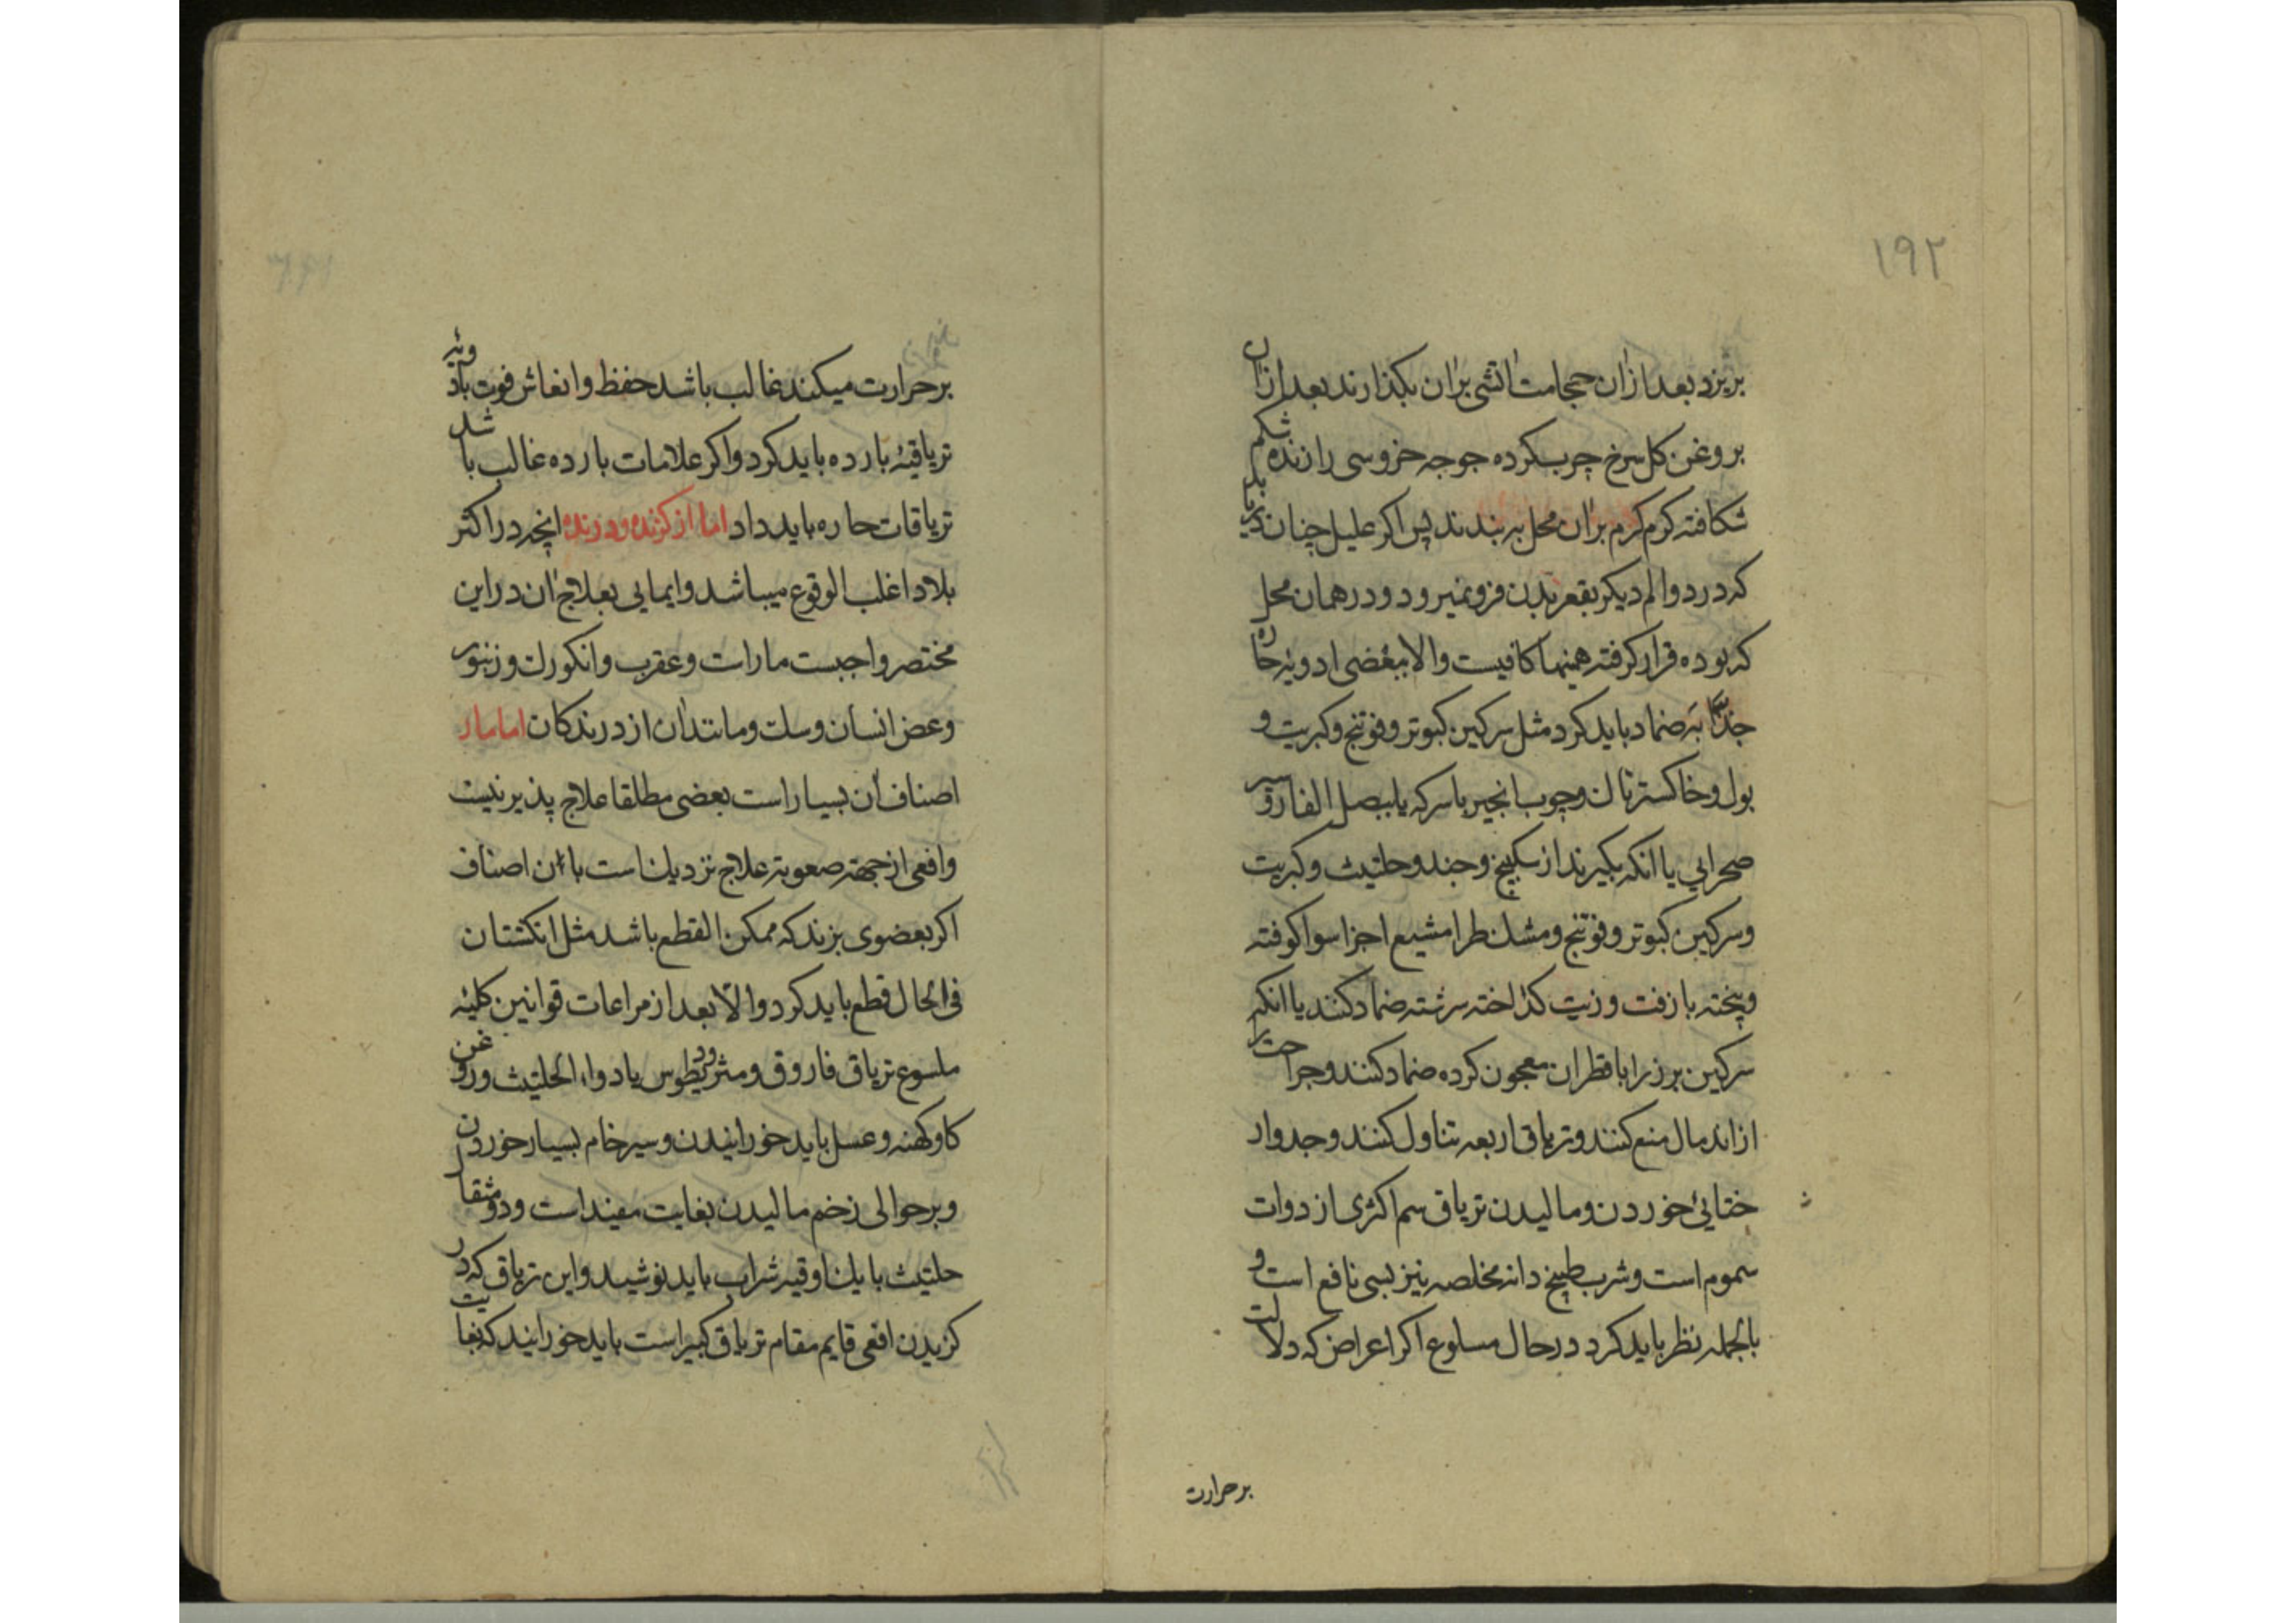 ۱۹۲
بریزد بعد ازان حجامت آتشی بران بکذارند بعد ازان
بروغن کل سرخ چرب کرده جوجه خروسی را زنده شکم
شکافته کرم کرم بران محل به بندند پس اکر علیل چنان دریابد
که درد والم دیکر بقعر بدن فرو نمیرود و در همان محل
که بوده قرار کرفته همینها کافیست والا ببعضی ادویه حاره
جذابه ضماد باید کرد مثل سرکین کبوتر و فوتنج و کبریت و
بول و خاکستر تاك و چوب انجیر با سرکه یا ببصل الفار و سیر
صحرایی یا انکه بکیرند از سکبینج و جند و حلتیت و کبریت
و سرکین کبوتر و فوتنج و مشك طرامشیع اجزا سوا کوفته
و پخته با زفت و زیت کداخته سرشته ضماد کنند یا انکه
سرکین بز را با قطران معجون کرده ضماد کنند و جراحت را
از اندمال منع کنند و تریاق اربعه تناول کنند و جدوار
ختایی خوردن و مالیدن تریاق سم اکثری از ذوات
سموم است و شرب طبیخ دانه مخلصه نیز بسی نافع است و
بالجمله نظر باید کرد در حال مسلوع اکر اعراض که دلالت
بر حرارت
بر حرارت میکند غالب باشد حفظ و انعاش قوت بادویه
تریاقیه بارده باید کرد و اکر علامات بارده غالب باشد
تریاقات حاره باید داد اما از کزنده و درنده انچه در اکثر
بلاد اغلب الوقوع میباشد و ایمایی بعلاج ان در این
مختصر واجبست مارات و عقرب و انکورك و زنبور
و عض انسان و سك و مانند ان از درندکان اما مار
اصناف ان بسیار است بعضی مطلقا علاج پذیر نیست
و افعی از جهة صعوبة علاج نزدیك است با ان اصناف
اکر بعضوی بزند که ممکن القطع باشد مثل انکشتان
فی الحال قطع باید کرد والا بعد از مراعات قوانین کلیه
ملسوع تریاق فاروق و مثرودیطوس یا دواء الحلتیت و روغن
کاو کهنه و عسل باید خورانیدن و سیر خام بسیار خوردن
و بر حوالی زخم مالیدن بغایت مفید است و دو مثقال
حلتیت با یك اوقیه شراب باید نوشید و این تریاق که در
کزیدن افعی قایم مقام تریاق کبیر است باید خورانید که بغایت